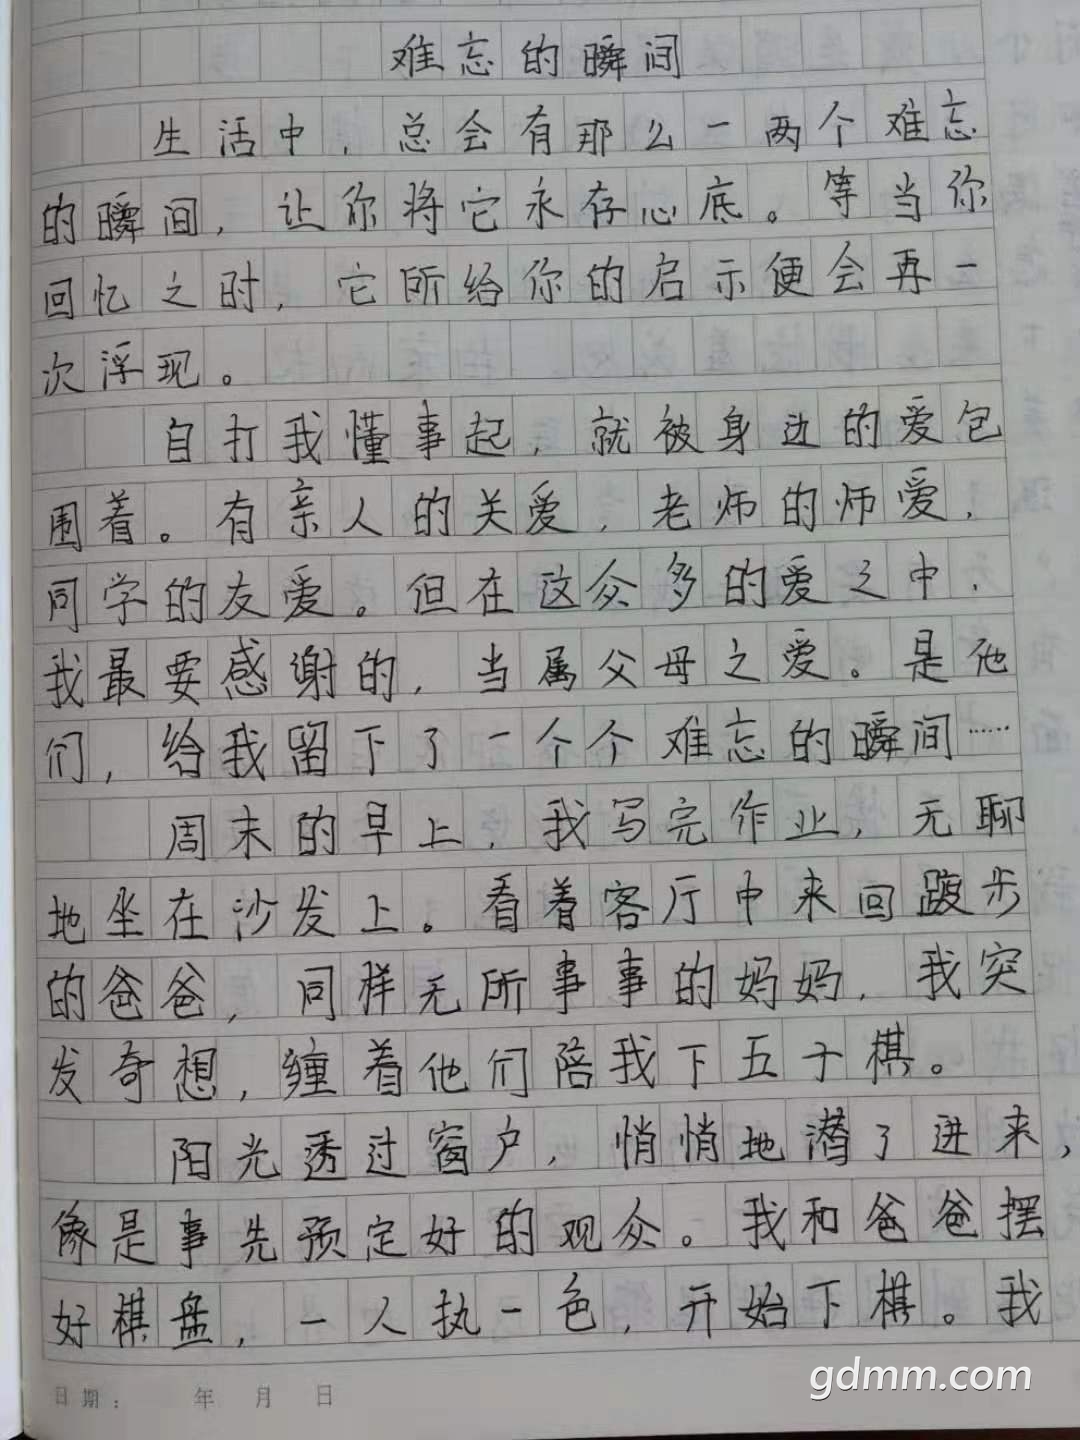 难忘的瞬间
生活中，总会有那么一两个难忘
的瞬间，让你将它永存心底。等当你
回忆之时，它所给你的启示便会再一
次浮现。
自打我懂事起，就被身边的爱包
围着。有亲人的关爱，老师的师爱，
同学的友爱。但在这众多的爱之中，
我最要感谢的，当属父母之爱。是他
们，给我留下了一个个难忘的瞬间……
周末的早上，我写完作业，无聊
地坐在沙发上。看着客厅中来回踱步
的爸爸，同样无所事事的妈妈，我突
发奇想，缠着他们陪我下五子棋。
阳光透过窗户，悄悄地潜了进来，
像是事先预定好的观众。我和爸爸摆
好棋盘，一人执一色，开始下棋。我
日期： 年 月 日
gdmm.com